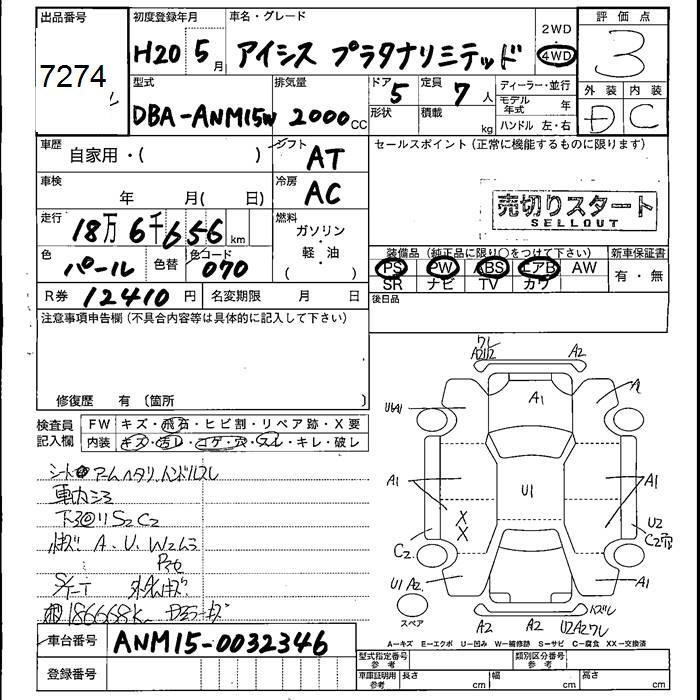 出品番号
7274
初度登録年月
H20 5月
車名・グレード
アイシス プラタナリミテッド
2WD
・
4WD
評価点
3
型式
DBA-ANM15W
排気量
2000cc
ドア
5
形状
定員
7人
積載
kg
ディーラー・並行
モデル年式 年
ハンドル 左・右
外装 内装
D C
車歴
自家用・( )
シフト
AT
セールスポイント (正常に機能するものに限ります)
売切りスタート
SELLOUT
車検
年 月( 日)
冷房
AC
走行
18万6千656km
燃料
ガソリン
・
軽・油
( )
色
パール
色替
色コード
070
装備品 (純正品に限り○をつけて下さい)
PS PW ABS エアB AW
SR ナビ TV カワ
新車保証書
有・無
R券 12410円
名変期限 月 日
後日品
注意事項申告欄 (不具合内容等は具体的に記入して下さい)
修復歴 有 〔箇所
検査員
記入欄
FW キズ・飛石・ヒビ割・リペア跡・X要
内装 キズ・汚レ・コゲ・穴・スレ・キレ・破レ
下回リS2C2
A、U、W2ムラ
186668K
車台番号 ANM15-0032346
登録番号
ワレ
A2U2
A2
A1
A1
U1
A1
A1
X
X
C2
U2
C2穴
U1 A2
A1
スペア
A2
A2
U2A2ワレ
A=キズ E=エクボ U=凹み W=補修跡 S=サビ C=腐食 XX=交換済
型式指定番号
参考
類別区分番号
参考
車庫証明用
参考
長さ cm
幅 cm
高さ cm